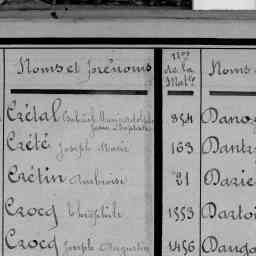 Noms et prénoms Nos de la Matle Noms
Crétal 854 Dano
Jean Baptiste
Crété Joseph Marie 163 Dantr
Crétin Ambroise 21 Darie
Crocq Théophile 1553 Darto
Crocq Joseph Augustin 1456 Daug